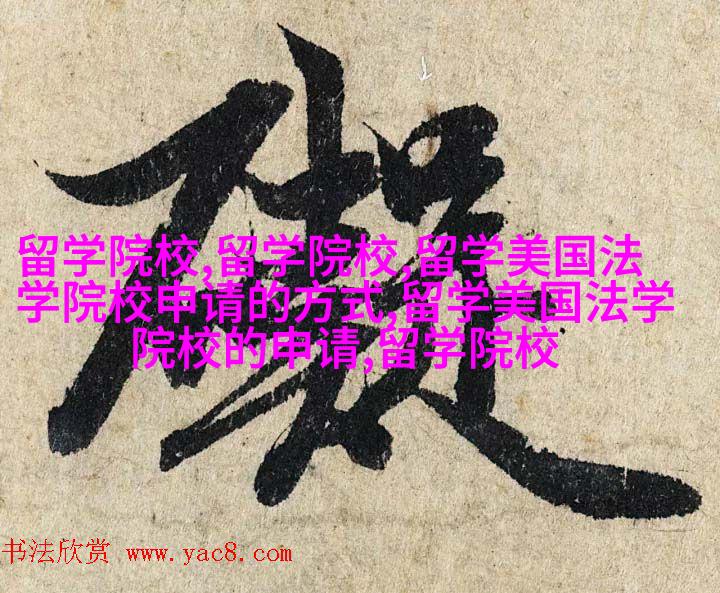 礙
留学院校,留学院校,留学美国法
学院校申请的方式,留学美国法学
院校的申请,留学院校
书法欣赏 www.yac8.com